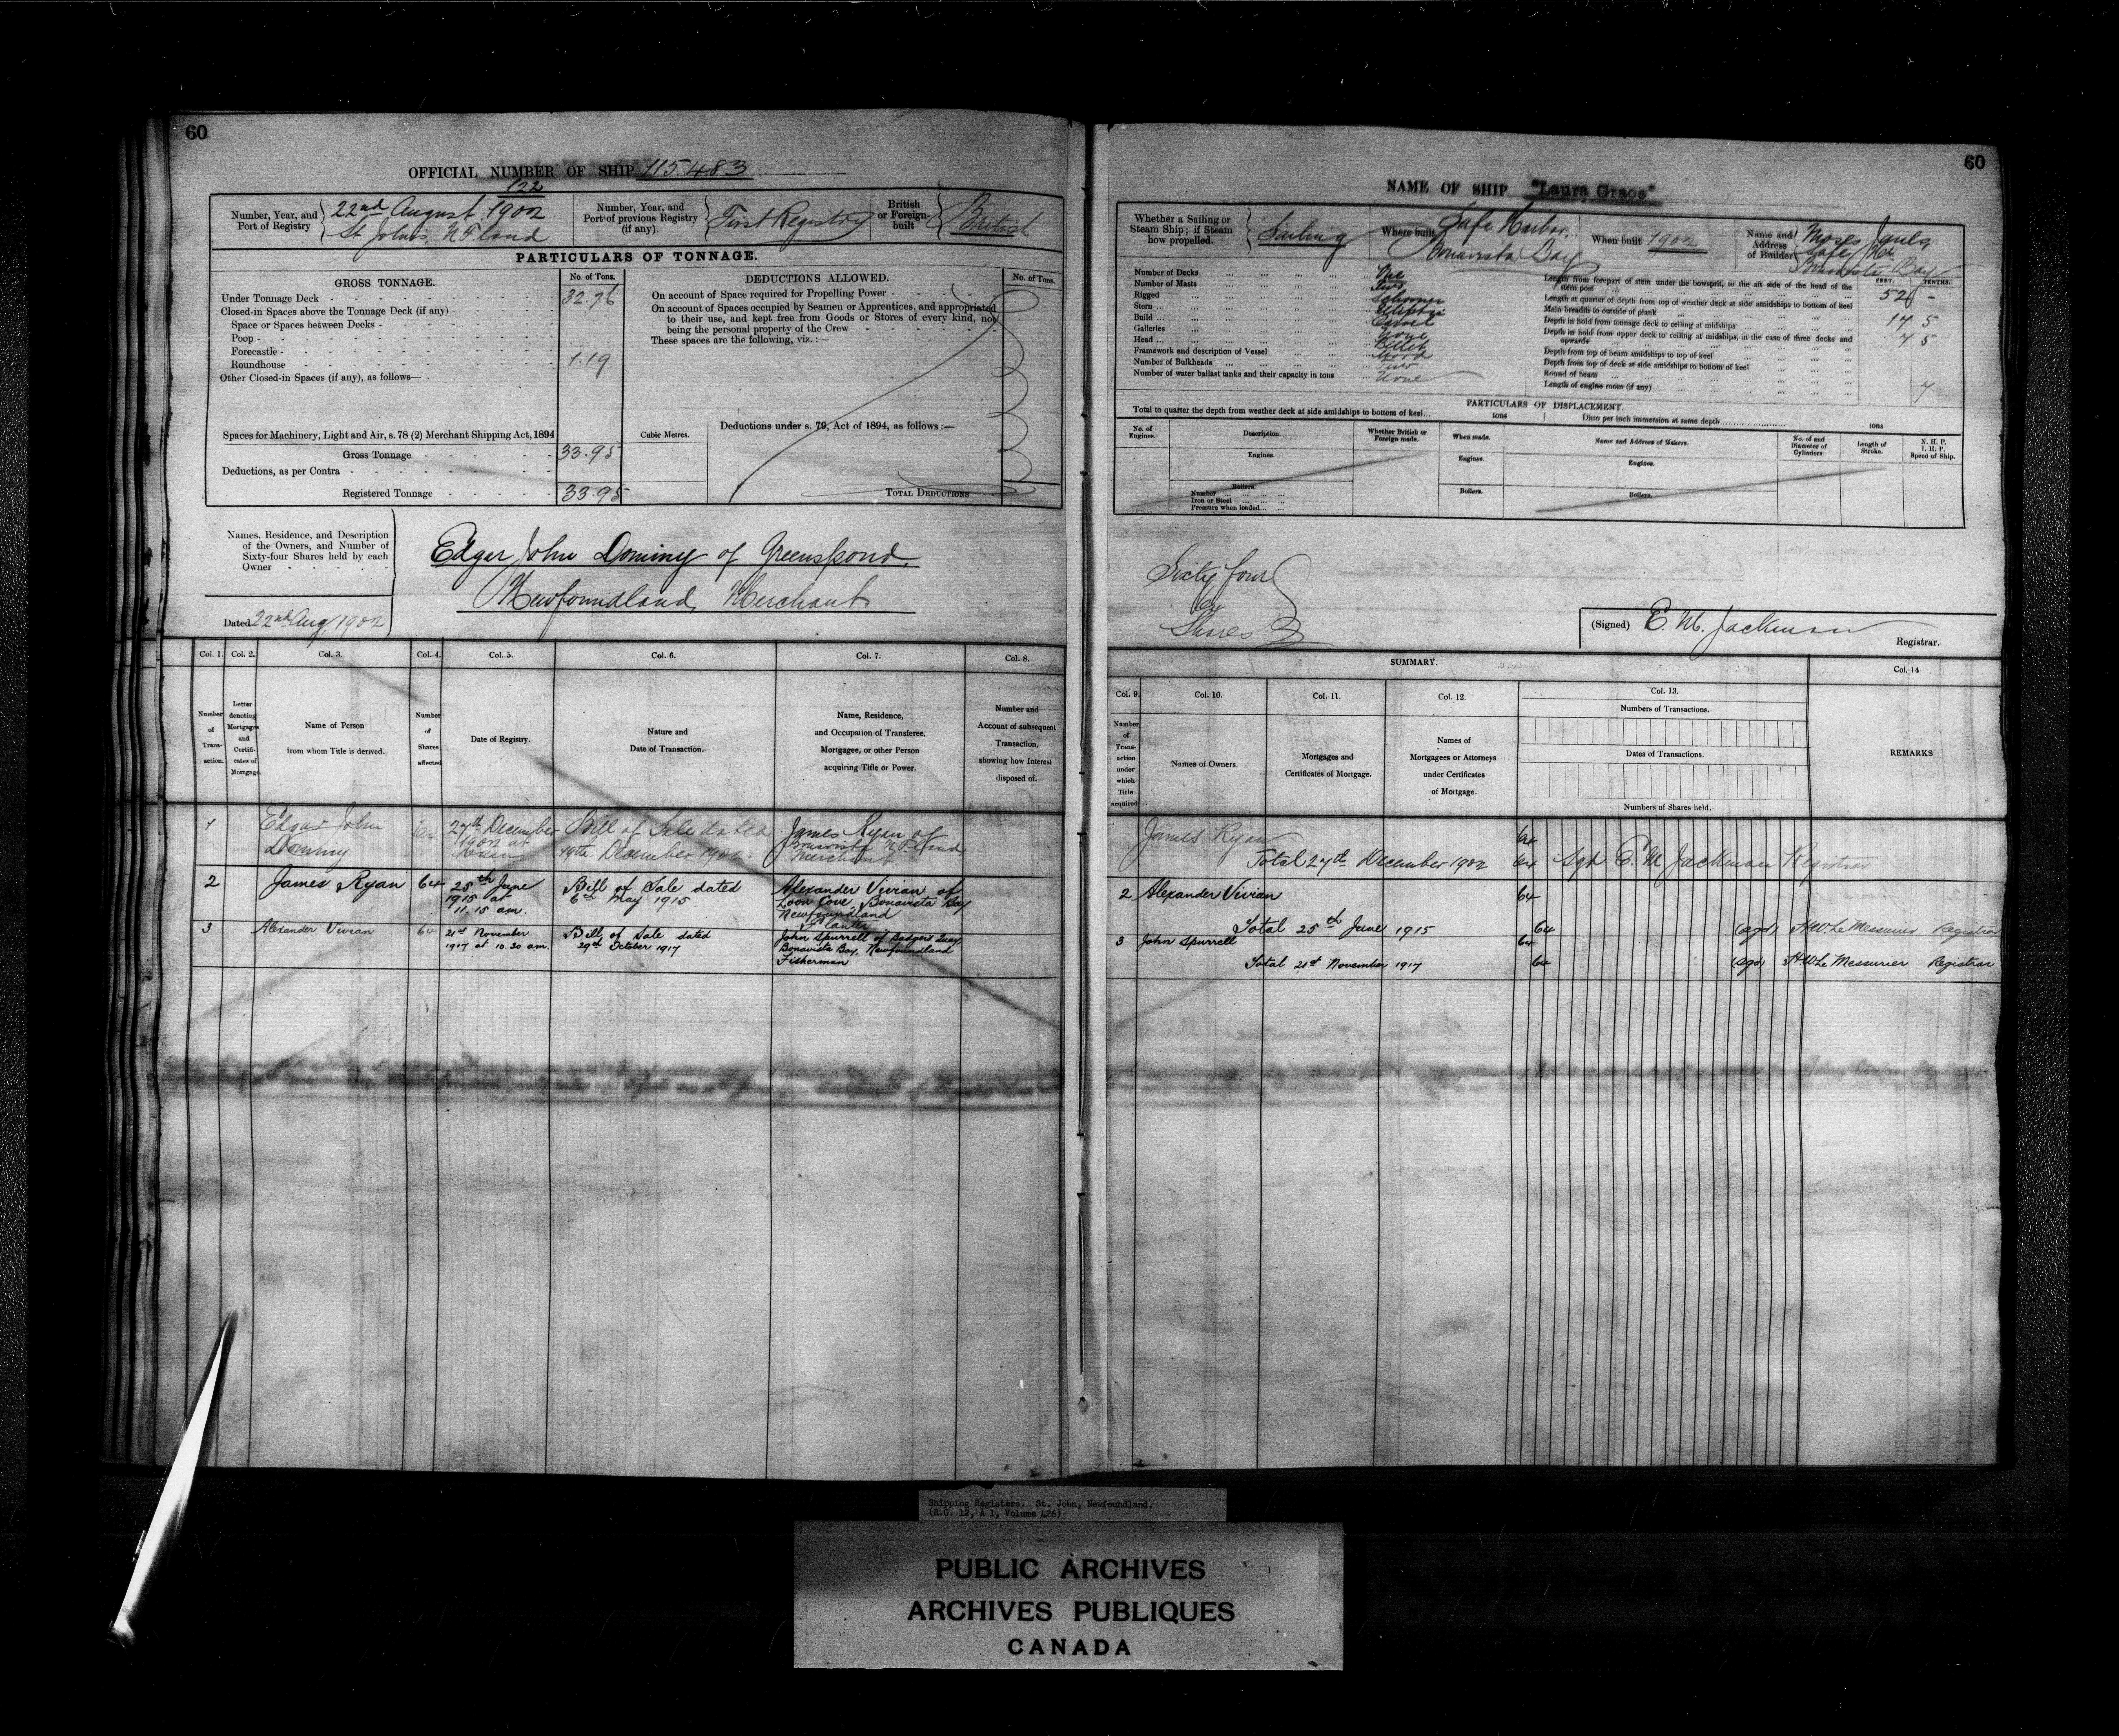 60
OFFICIAL NUMBER OF SHIP 115.483
122
Number, Year, and Port of Registry
22nd August, 1902
St John's, N.F.land
Number, Year, and Port of previous Registry (if any).
First Registry
British or Foreign-built
British
PARTICULARS OF TONNAGE.
GROSS TONNAGE.
No. of Tons.
Under Tonnage Deck 32.76
Closed-in Spaces above the Tonnage Deck (if any)
Space or Spaces between Decks
Poop
Forecastle
Roundhouse 1.19
Other Closed-in Spaces (if any), as follows
Spaces for Machinery, Light and Air, s. 78 (2) Merchant Shipping Act, 1894
Gross Tonnage 33.95
Deductions, as per Contra
Registered Tonnage 33.95
Cubic Metres.
DEDUCTIONS ALLOWED.
No. of Tons.
On account of Space required for Propelling Power
On account of Spaces occupied by Seamen or Apprentices, and appropriated
to their use, and kept free from Goods or Stores of every kind, not
being the personal property of the Crew
These spaces are the following, viz. :—
Deductions under s. 79, Act of 1894, as follows :—
TOTAL DEDUCTIONS
Names, Residence, and Description
of the Owners, and Number of
Sixty-four Shares held by each
Owner
Dated 22nd Aug, 1902
Edgar John Dominy of Greenspond,
Newfoundland, Merchant
Col. 1.
Number of Trans-action.
Col. 2.
Letter denoting Mortgages and Certifi-cates of Mortgage.
Col. 3.
Name of Person
from whom Title is derived.
Col. 4.
Number of Shares affected
Col. 5.
Date of Registry.
Col. 6.
Nature and
Date of Transaction.
Col. 7.
Name, Residence,
and Occupation of Transferee,
Mortgagee, or other Person
acquiring Title or Power.
Col. 8.
Number and
Account of subsequent
Transaction,
showing how Interest
disposed of.
1 Edgar John Dominy 64 27th December 1902 at Bill of Sale dated 19th December 1902. James Ryan of Bonavista N.F.land, Merchant
2 James Ryan 64 25th June 1915 at 11.15 am. Bill of Sale dated 6th May 1915 Alexander Vivian of Loon Cove, Bonavista Bay Newfoundland Planter
3 Alexander Vivian 64 21st November 1917 at 10.30 am. Bill of Sale dated 29th October 1917 John Spurrell of Badgers Quay Bonavista Bay, Newfoundland Fisherman
60
NAME OF SHIP "Laura Grace"
Whether a Sailing or
Steam Ship; if Steam
how propelled.
Sailing
Where built
Safe Harbor,
Bonavista Bay
When built 1902
Name and Address of Builder
Moses
Safe Hbr
Bonavista Bay
Number of Decks One
Number of Masts Two
Rigged Schooner
Stern
Build Carvel
Galleries None
Head Billet
Framework and description of Vessel Wood
Number of Bulkheads Two
Number of water ballast tanks and their capacity in tons None
FEET. TENTHS.
Length from forepart of stem under the bowsprit, to the aft side of the head of the
stern post 52 -
Length at quarter of depth from top of weather deck at side amidships to bottom of keel
Main breadth to outside of plank 17 5
Depth in hold from tonnage deck to ceiling at midships 7 5
Depth in hold from upper deck to ceiling at midships, in the case of three decks and
upwards
Depth from top of beam amidships to top of keel
Depth from top of deck at side amidships to bottom of keel
Round of beam 7
Length of engine room (if any)
PARTICULARS OF DISPLACEMENT.
Total to quarter the depth from weather deck at side amidships to bottom of keel... tons
Ditto per inch immersion at same depth tons
No. of Engines.
Description.
Whether British or Foreign made.
When made.
Name and Address of Makers.
No. of and Diameter of Cylinders.
Length of Stroke.
N. H. P.
I. H. P.
Speed of Ship.
Engines.
Engines.
Engines.
Boilers.
Number
Iron or Steel
Pressure when loaded
Boilers.
Boilers.
Sixty four
64
Shares
(Signed) E. M. Jackman
Registrar.
SUMMARY.
Col. 9.
Number of Trans-action under which Title acquired
Col. 10.
Names of Owners.
Col. 11.
Mortgages and
Certificates of Mortgage.
Col. 12.
Names of
Mortgagees or Attorneys
under Certificates
of Mortgage.
Col. 13.
Numbers of Transactions.
Dates of Transactions.
Numbers of Shares held.
Col. 14
REMARKS
James Ryan 64
Total 27th December 1902 64 Sgd E. M. Jackman Registrar
2 Alexander Vivian 64
Total 25th June 1915 64 (sgd) H.W. Le Messurier Registrar
3 John Spurrell 64
Total 21st November 1917 64 (sgd) H.W. Le Messurier Registrar
Shipping Registers. St. John, Newfoundland.
(R.G. 12, A 1, Volume 426)
PUBLIC ARCHIVES
ARCHIVES PUBLIQUES
CANADA